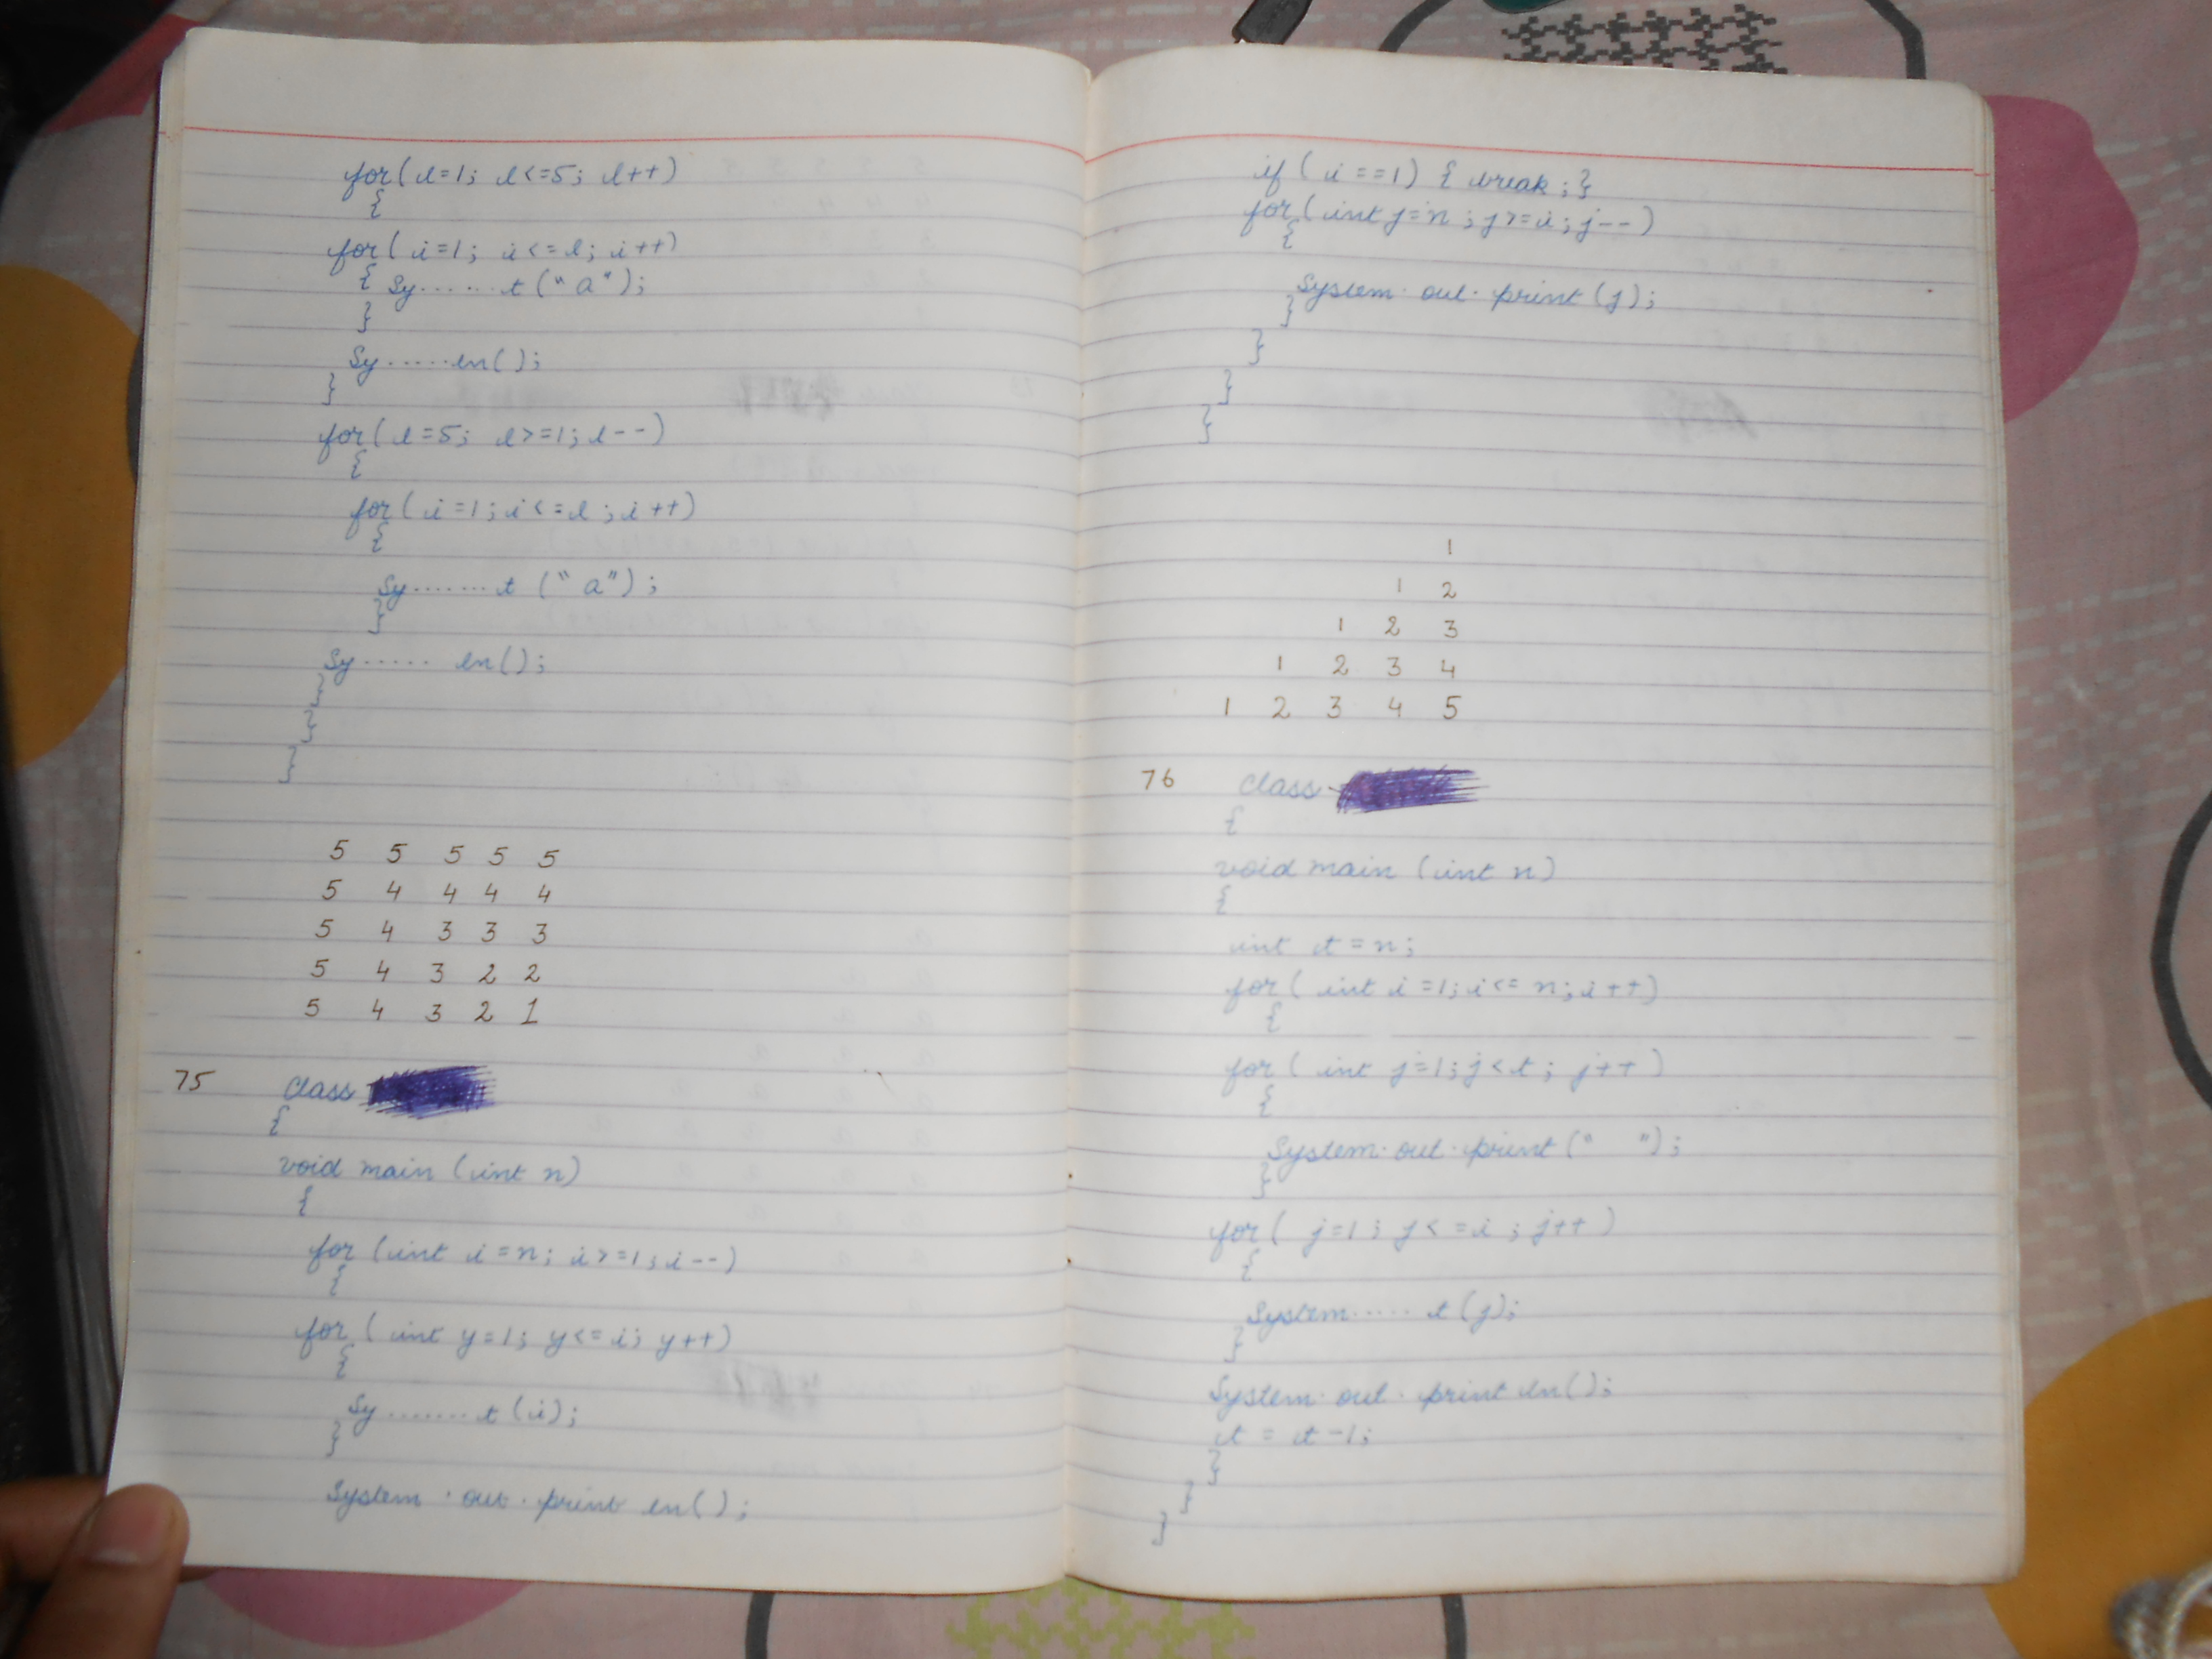 for(l=1; l<=5; l++)
{
for(i=1; i<=l; i++)
{ Sy.......t("a");
}
Sy.....ln();
}
for(l=5; l>=1; l--)
{
for(i=1; i<=l; i++)
{
Sy.......t ("a");
}
Sy..... ln();
}
}
}
5 5 5 5 5
5 4 4 4 4
5 4 3 3 3
5 4 3 2 2
5 4 3 2 1
75 class
{
void main (int n)
{
for (int i=n; i>=1; i--)
{
for (int y=1; y<=i; y++)
{
Sy.......t (i);
}
System.out.print ln();
if (i==1) { break; }
for (int j=n; j>=i; j--)
{
System.out.print (j);
}
}
}
}
1
1 2
1 2 3
1 2 3 4
1 2 3 4 5
76 class
{
void main (int n)
{
int t=n;
for (int i=1; i<=n; i++)
{
for (int j=1; j<t; j++)
{
System.out.print(" ");
}
for ( j=1; j<=i; j++)
{
System..... t (j);
}
System.out.print ln();
t = t-1;
}
}
}